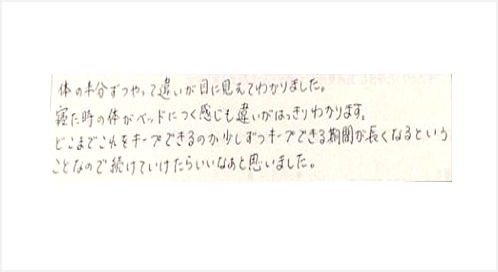 体の半分ずつやって違いが目に見えてわかりました。
寝た時の体がベッドにつく感じも違いがはっきりわかります。
どこまでこれをキープできるのか少しずつキープできる期間が長くなるという
ことなので続けていけたらいいなあと思いました。